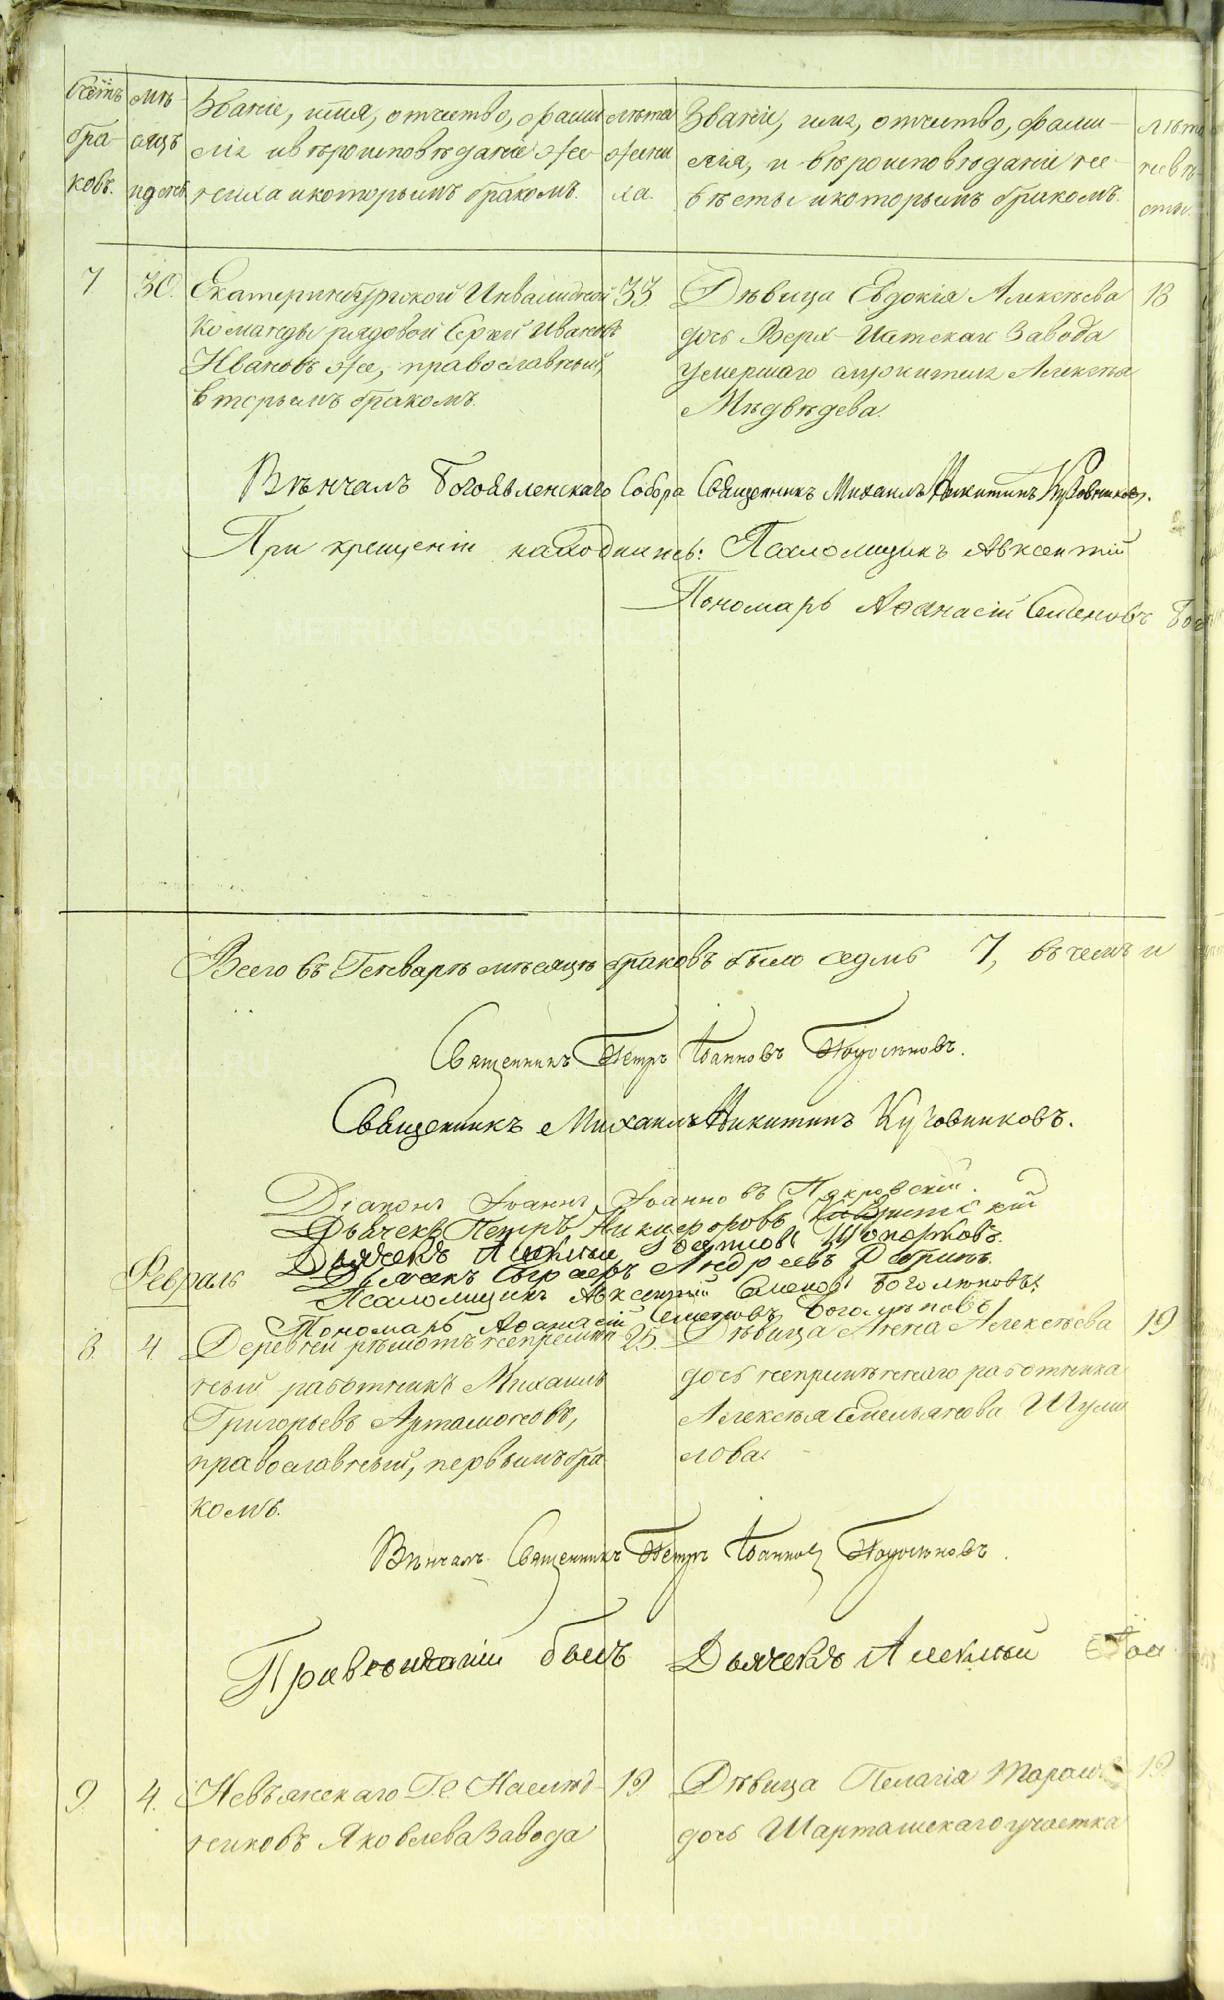 Счетъ бра- ковъ.
мѣ- сяцъ и день
Званіе, имя, отчество, фами-
лія и вѣроисповѣданіе же-
ниха и которымъ бракомъ.
лѣта жени ха.
Званіе, имя, отчество, фами-
лія, и вѣроисповѣданіе не-
вѣсты и которымъ бракомъ.
лѣта невѣ- сты.
7
30.
Екатеринбургской Инвалидной
команды рядовой Сергей Ивановъ
Ивановъ же, православный,
вторымъ бракомъ.
33
Дѣвица Евдокія Алексѣева
дочь Верх-Исетскаго Завода
умершаго служителя Алексѣя
Медвѣдева.
18
Вѣнчалъ Богоявленскаго Собора Священникъ Михаилъ Никитинъ Кутовниковъ.
При крещеніи находились: Псаломщикъ Авксентій
Пономарь Афанасій Семеновъ Бог
Всего въ Генварѣ мѣсяцѣ браковъ было седмь 7, въ чемъ и
Священникъ Петръ Іоанновъ
Священникъ Михаилъ Никитинъ Кутовниковъ.
Діаконъ Іоаннъ Іоанновъ Покровскій.
Дьячекъ Петръ Никифоровъ
Дьячекъ Алексѣй Топорковъ.
Дьячекъ Андреевъ
Псаломщикъ Авксентій Семеновъ Боголюповъ
Пономарь Афанасій Семеновъ Боголѣповъ
Февраль
8.
4
Деревни рѣшотъ непремѣн
ный работникъ Михаилъ
Григорьевъ Артамоновъ,
православный, первымъ бра
комъ.
25.
Дѣвица Анна Алексѣева
дочь непремѣннаго работника
Алексѣя Емельянова Шуми
лова.
19
Вѣнчалъ Священникъ Петръ Іоанновъ
При вѣнчаніи былъ Дьячекъ Алексѣй
9.
4.
Невьянскаго Г.С. Наслѣд-
никовъ Яковлева Завода
19
Дѣвица Пелагія Тарасова
дочь Шарташскаго участка
19
METRIKI.GASO-URAL.RU